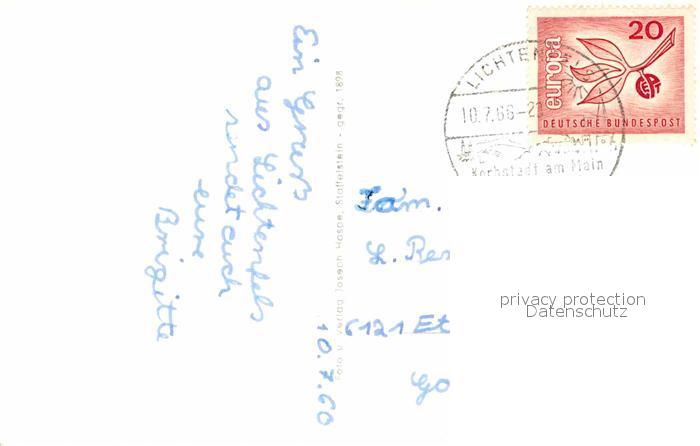 Ein Gruß
aus Lichtenfels
sindet euch
eure
Brigitte
10.7.60
Foto u. Verlag Joseph Haspe, Staffelstein - gegr. 1898
Fam.
L. Res
6121 Et
Go
20
europa
DEUTSCHE BUNDESPOST
10.7.66-2
Korbstadt am Main
privacy protection
Datenschutz